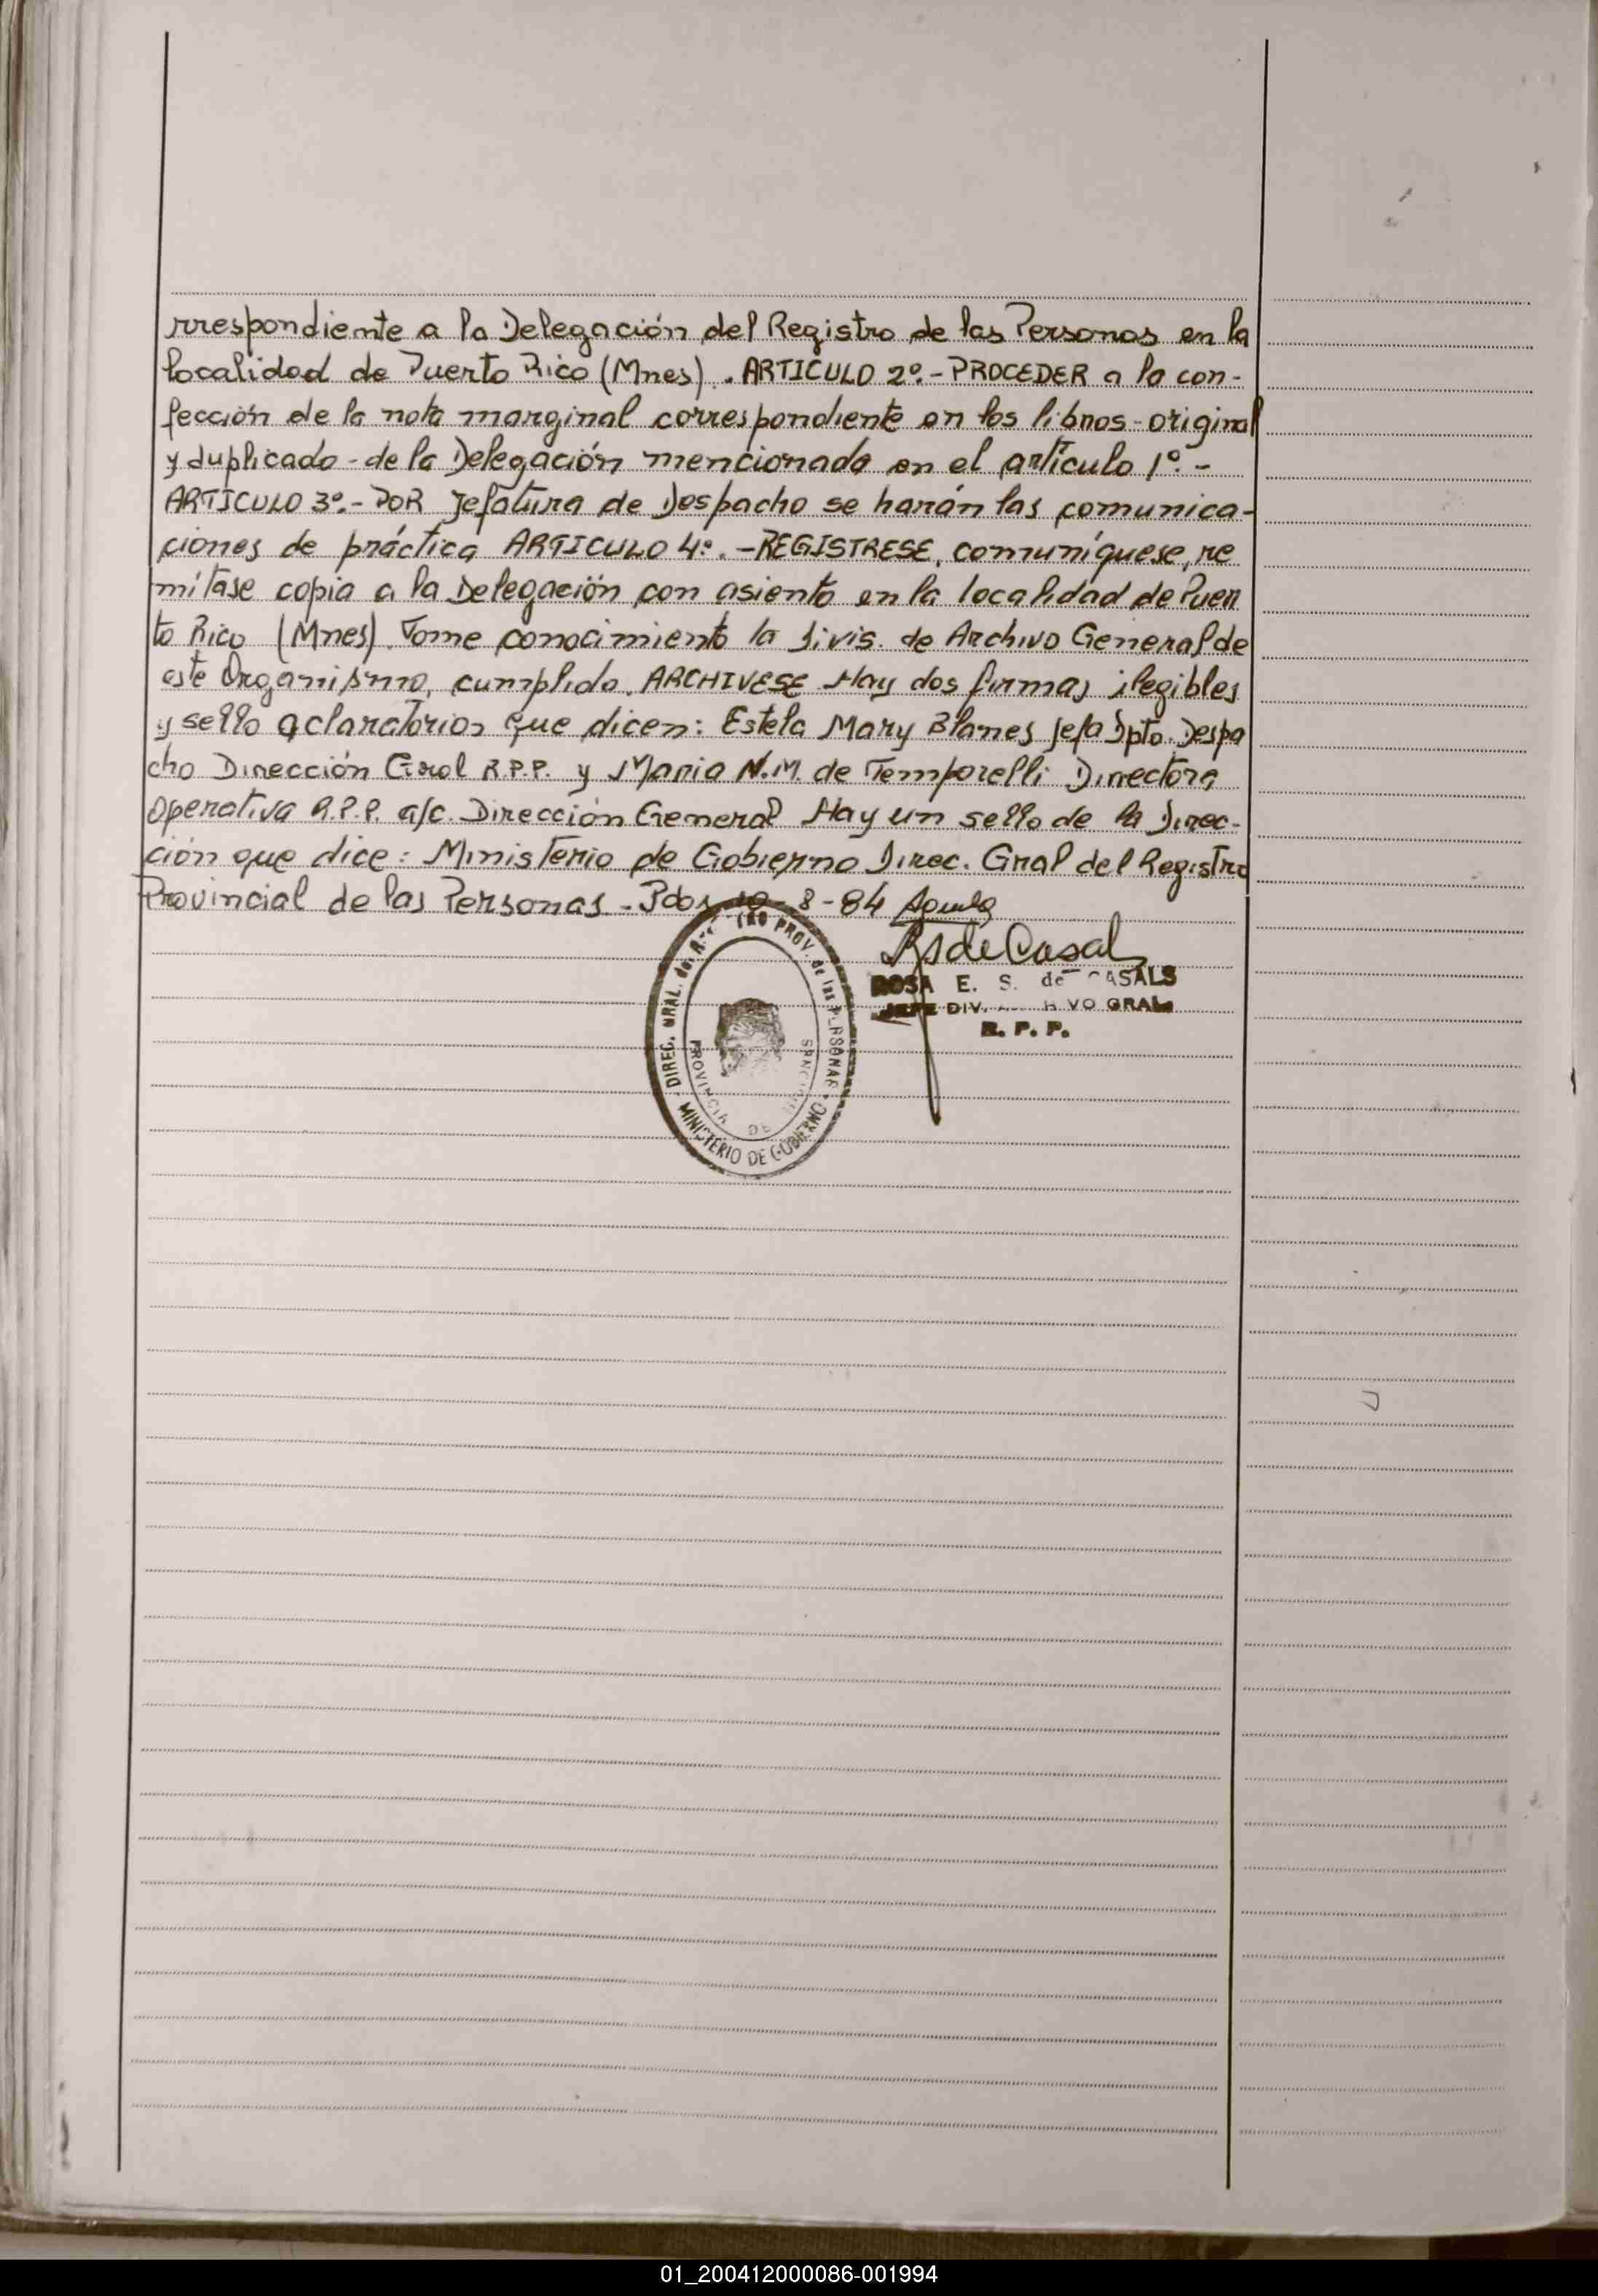 rrespondiente a la Delegación del Registro de las Personas en la
localidad de Puerto Rico (Mnes). ARTICULO 2º.- PROCEDER a la con-
fección de la nota marginal correspondiente en los libros-original
y duplicado-de la Delegación mencionada en el artículo 1º.-
ARTICULO 3º.- POR Jefatura de Despacho se harán las comunica-
ciones de práctica ARTICULO 4º.-REGISTRESE, comuníquese, re
mítase copia a la Delegación con asiento en la localidad de Puer
to Rico (Mnes). Tome conocimiento la Divis. de Archivo General de
este Organismo, cumplido. ARCHIVESE Hay dos firmas ilegibles
y sello aclaratorios que dicen: Estela Mary Blanes Jefa Dpto. Despa
cho Dirección Gral R.P.P. y Maria N.M. de Temporelli Directora
Operativa R.P.P. a/c. Dirección General Hay un sello de la Direc-
ción que dice: Ministerio de Gobierno Direc. Gral del Registro
Provincial de las Personas - Pdos - 8 - 84
ROSA E. S. de CASALS
JEFE DIV. GRAL.
R. P. P.
DIREC. GRAL. del PROV. de las PERSONAS
MINISTERIO DE GOBIERNO
PROVINCIA DE
01_200412000086-001994